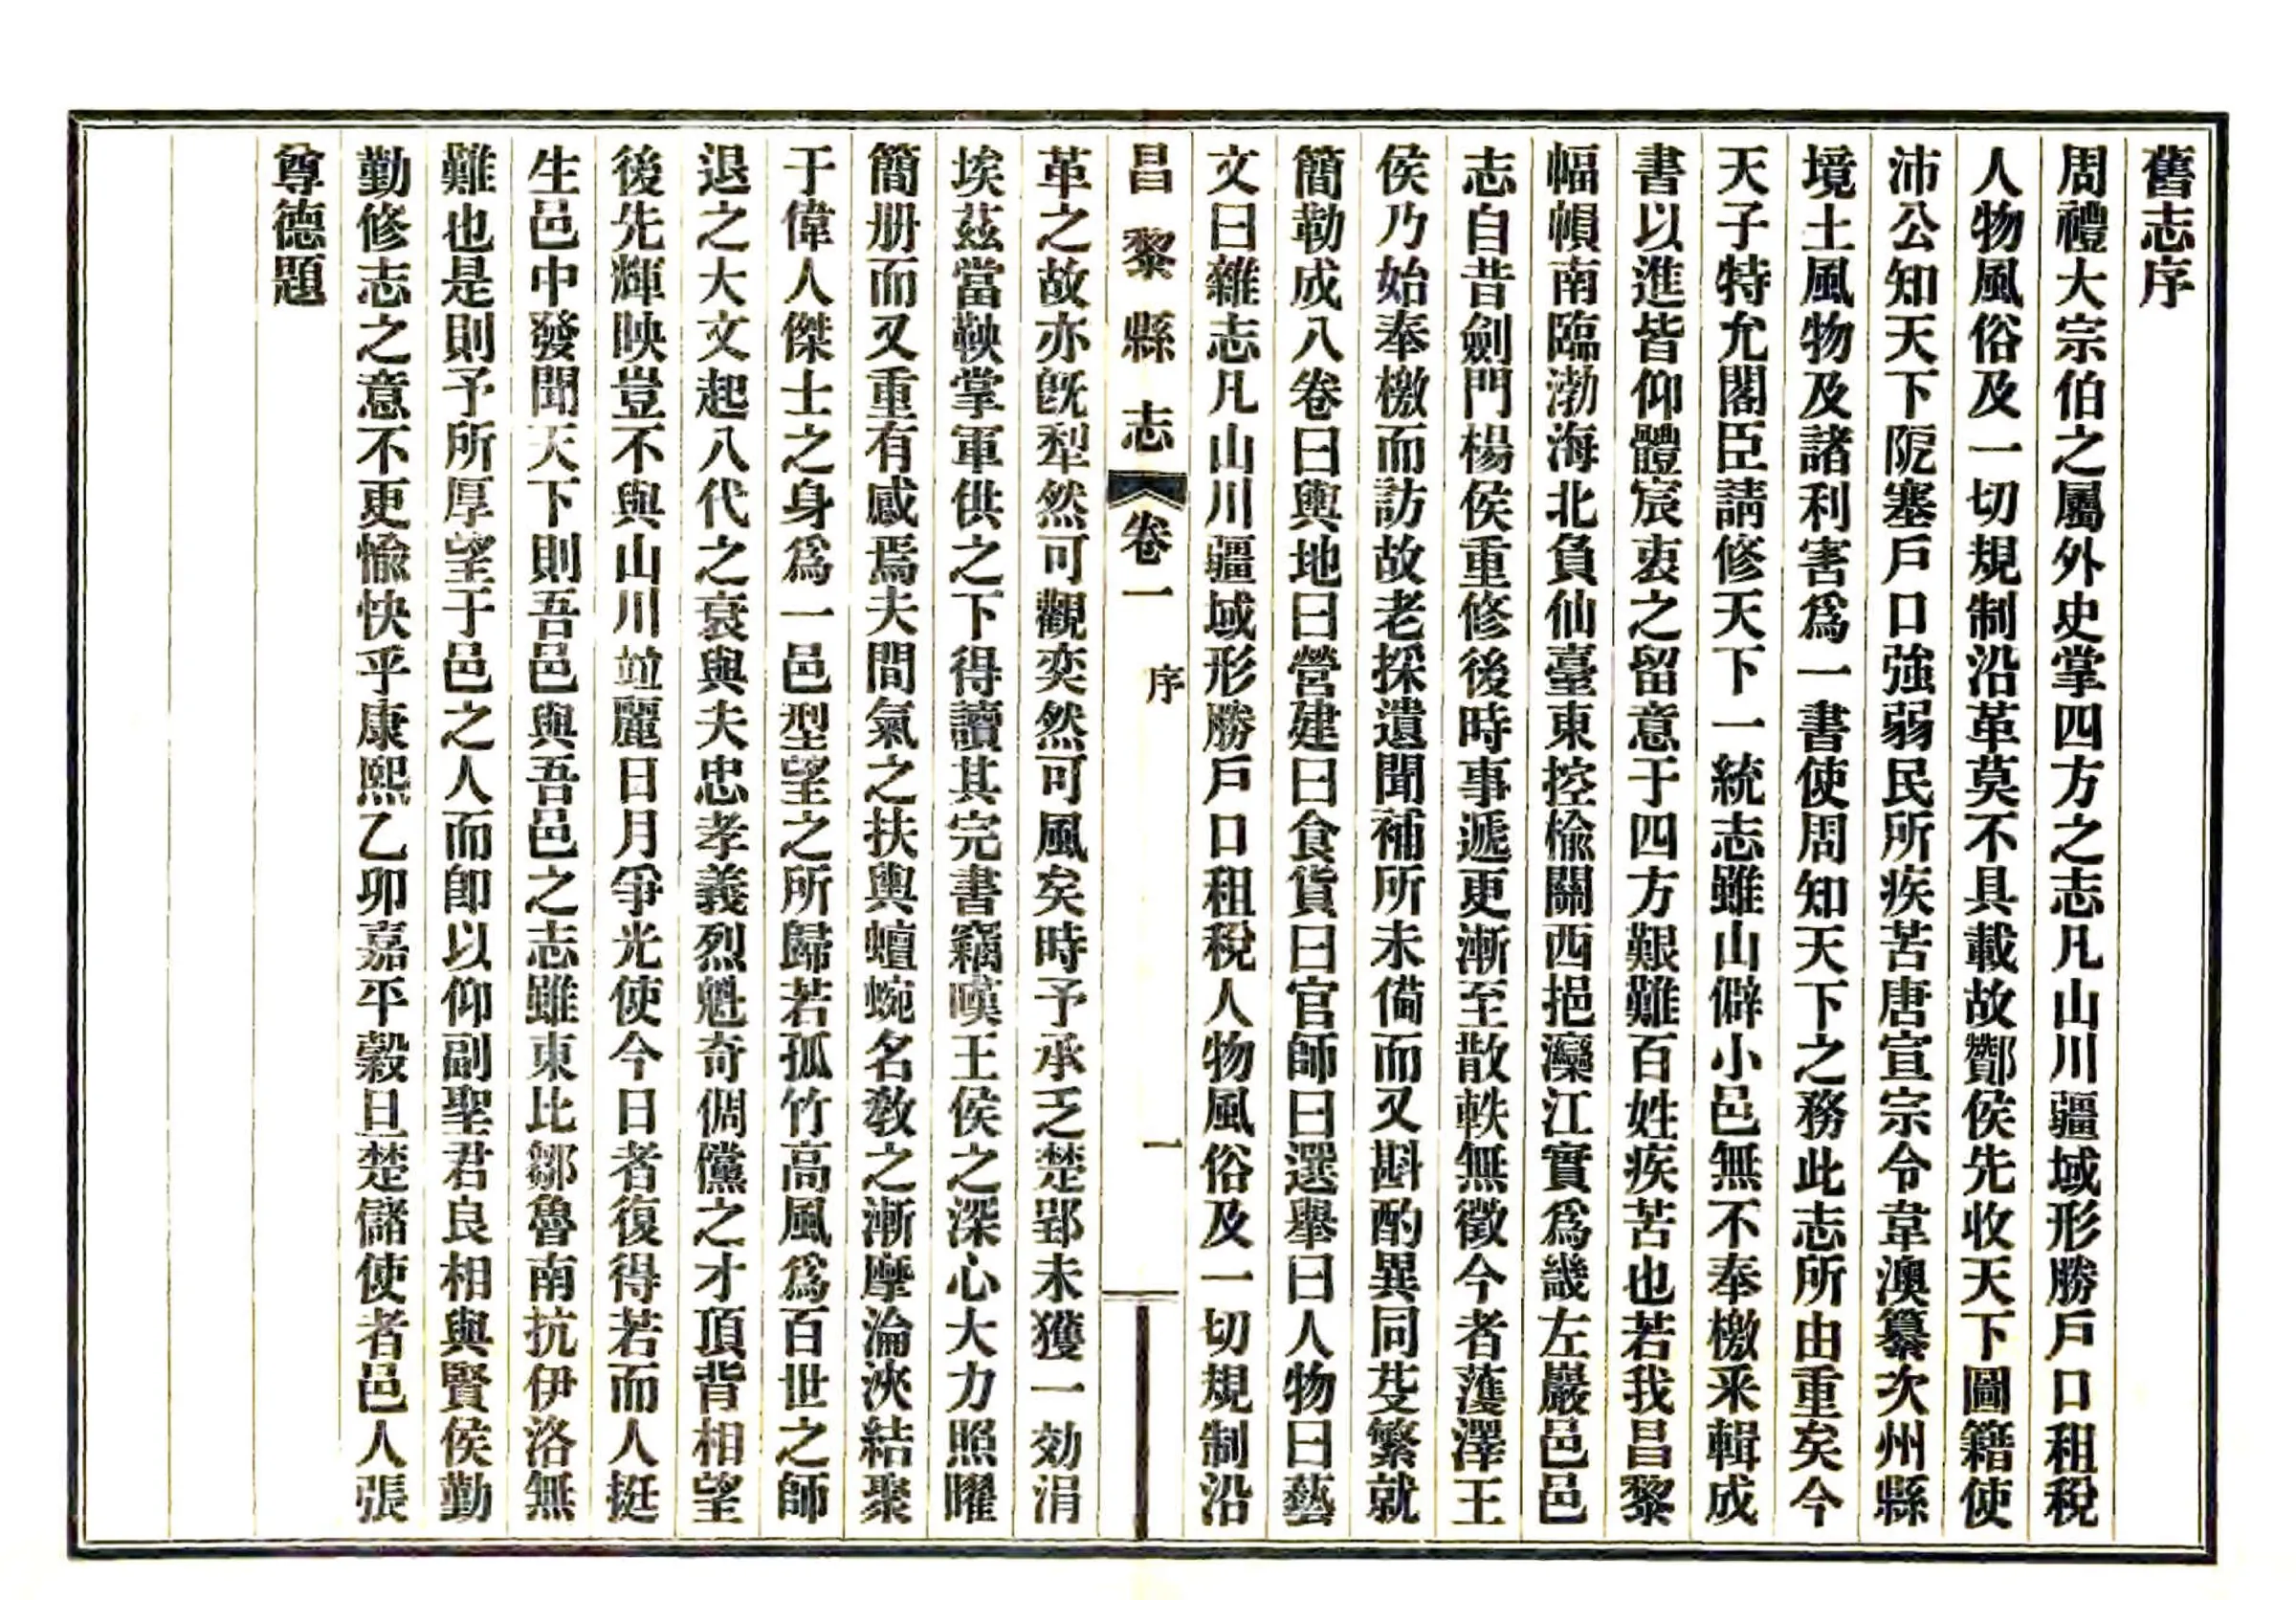 舊志序
周禮大宗伯之屬外史掌四方之志凡山川疆域形勝戶口租稅
人物風俗及一切規制沿革莫不具載故酇侯先收天下圖籍使
沛公知天下阨塞戶口強弱民所疾苦唐宣宗令韋澳纂次州縣
境土風物及諸利害爲一書使周知天下之務此志所由重矣今
天子特允閣臣請修天下一統志雖山僻小邑無不奉檄采輯成
書以進皆仰體宸衷之留意于四方艱難百姓疾苦也若我昌黎
幅幀南臨渤海北負仙臺東控榆關西挹灤江實爲畿左巖邑邑
志自昔劍門楊侯重修後時事遞更漸至散軼無徵今者蒦澤王
侯乃始奉檄而訪故老採遺聞補所未備而又斟酌異同芟繁就
簡勒成八卷曰輿地曰營建曰食貨曰官師曰選舉曰人物曰藝
文曰雜志凡山川疆域形勝戶口租稅人物風俗及一切規制沿
昌黎縣志 卷一 序 一
革之故亦旣犁然可觀奕然可風矣時予承乏楚郢未獲一効涓
埃茲當鞅掌軍供之下得讀其完書竊嘆王侯之深心大力照耀
簡册而又重有感焉夫間氣之扶輿蟺蜿名敎之漸摩淪浹結聚
于偉人傑士之身爲一邑型望之所歸若孤竹高風爲百世之師
退之大文起八代之衰與夫忠孝義烈魁奇倜儻之才頂背相望
後先輝映豈不與山川竝麗日月爭光使今日者復得若而人挺
生邑中發聞天下則吾邑與吾邑之志雖東比鄒魯南抗伊洛無
難也是則予所厚望于邑之人而卽以仰副聖君良相與賢侯勤
勤修志之意不更愉快乎康熙乙卯嘉平穀旦楚儲使者邑人張
尊德題